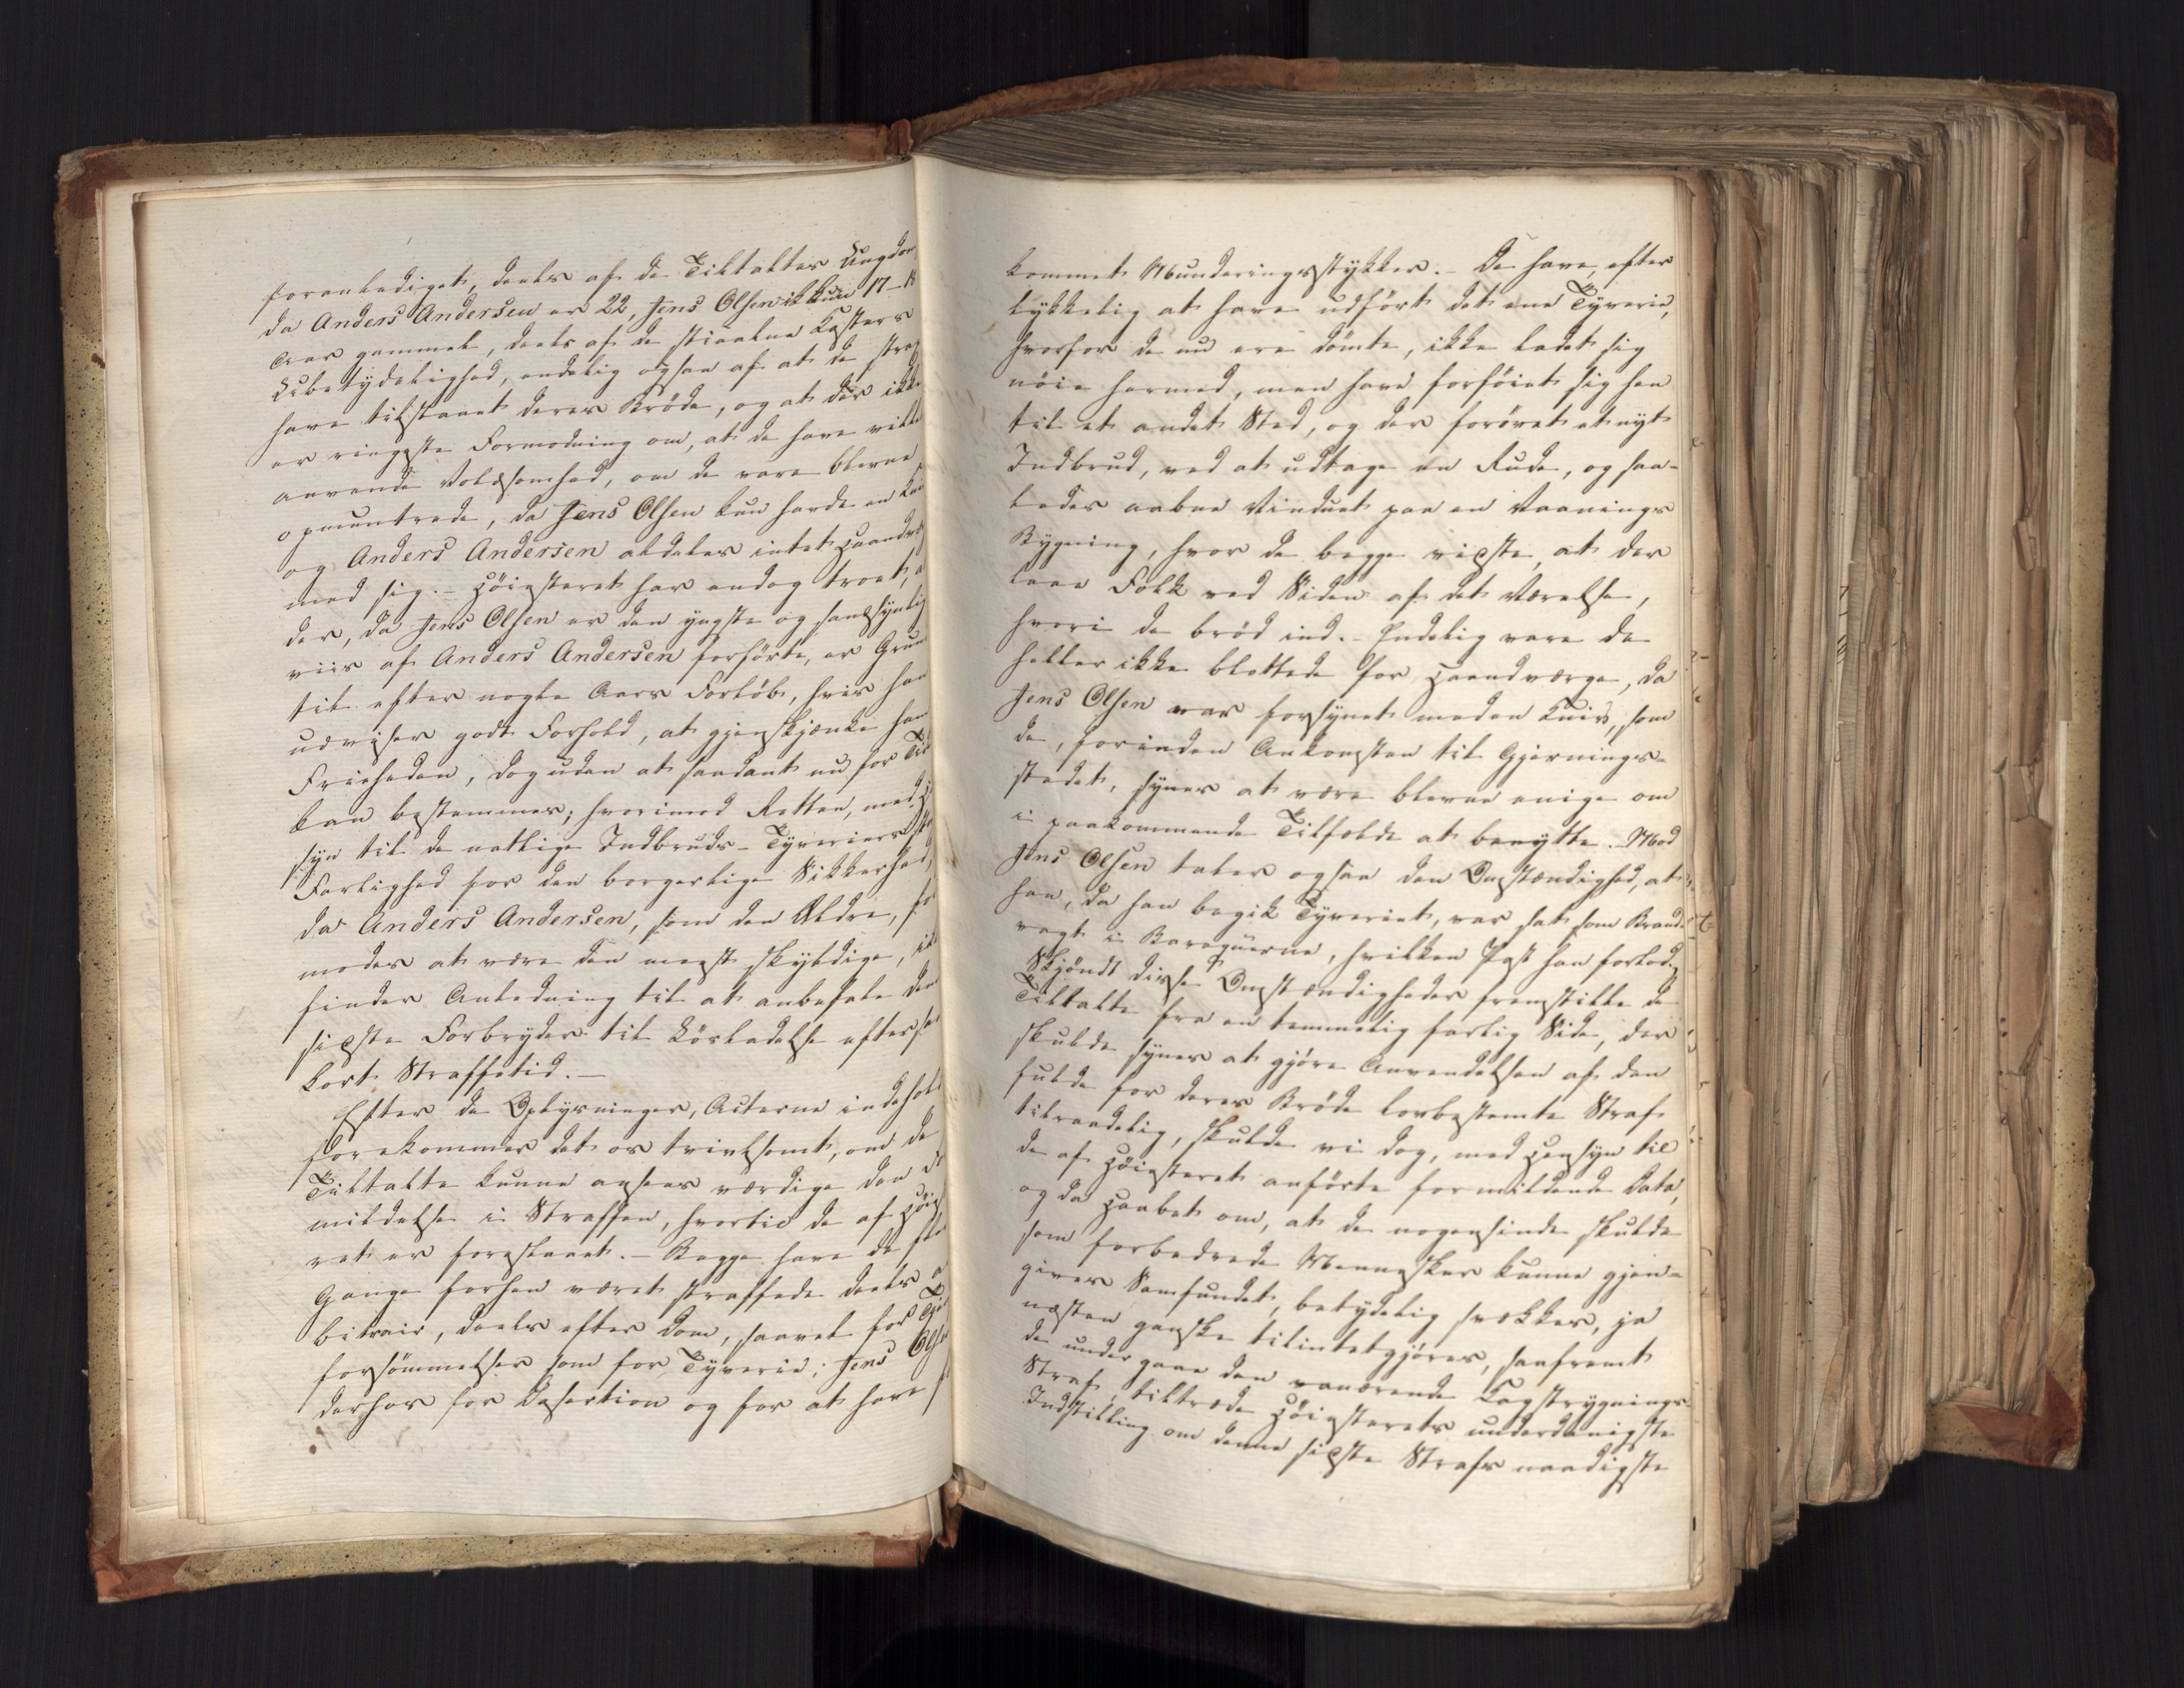 foranlediget, deels af de Tiltaltes Ungdom
da Anders Andersen er 22, Jens Olsen ikkun 17-18
Aar gammel, deels af de stiaalne Kosters
Ubetydelighed, endelig ogsaa af at de strax
have tilstaaet deres Bröde, og at der ikke
er ringeste Formodning om, at de have villet
anvende Voldsomhed, om de vare blevne
opmuntrede, da Jens Olsen kun havde en Kniv
og Anders Andersen aldeles intet Haandv
med sig. - Höiesteret har endog troet, a
der, da Jens Olsen er den yngste og sandsynlig
viis af Anders Andersen forförte, er Grund
til efter nogle Aars Forlöb, hvis han
udviser godt Forhold, at gjenskjænke ham
Friheden, dog uden at saadant nu for Tid
kan bestemmes; hvorimod Retten, med H
syn til de natlige Indbruds-Tyveriers
Farlighed for den borgerlige Sikkerhed,
da Anders Andersen, som den Ældre, for
modes at være den meest skyldige, ikke
finder Anledning til at anbefale den
sidste Forbryder til Lösladelse efter saa
kort Straffetid. -
Efter de Oplysninger, Acterne indehold
forekommer det os tvivlsomt, om de
Tiltalte kunne ansees værdige den For
mildelse i Straffen, hvortil de af Höie
ret er foreslaaet. - Begge have de fle
Gange forhen været straffede deels a
bitrair, deels efter Dom, saavel for Tje
forsömmelser som for Tyverie; Jens Olsen
derhos for Desertion og for at have
kommet Munderingsstykker. - De have, efter
lykkelig at have udfört det ene Tyverie,
hvorfor de nu ere dömte, ikke ladet sig
nöie hermed, men have forföiet sig hen
til et andet Sted, og der forövet et nyt
Indbrud, ved at udtage en Rude, og saa-
ledes aabne Vinduet paa en Vaanings
Bygning, hvor de begge vidste, at der
laae Folk ved Siden af det Værelse,
hvori de bröd ind. - Endelig vare de
heller ikke blottede for Haandværge, da
Jens Olsen var forsynet med en Kniv, som
de, forinden Ankomsten til Gjernings-
stedet, synes at være blevne enige om
i paakommende Tilfælde at benytte. - Mod
Jens Olsen taler ogsaa den Omstændighed, at
han, da han begik Tyveriet, var sat som Brand-
vagt i Baraquerne, hvilken Post han forlod.
Skjöndt disse Omstændigheder fremstille de
Tiltalte fra en temmelig farlig Side, der
skulde synes at gjöre Anvendelsen af den
fulde for deres Bröde lovbestemte Straf
tilraadelig, skulde vi dog, med Hensyn til
de af Höiesteret anförte formildende Data,
og da Haabet om, at de nogensinde skulde
som forbedrede Mennesker kunne gjen-
gives Samfundet, betydelig svækkes, ja
næsten ganske tilintetgjöres, saafremt
de undergaae den vanærende Kagstrygnings-
Straf, tiltræde Höiesterets underdanigste
Indstilling om denne sidste Strafs naadigste